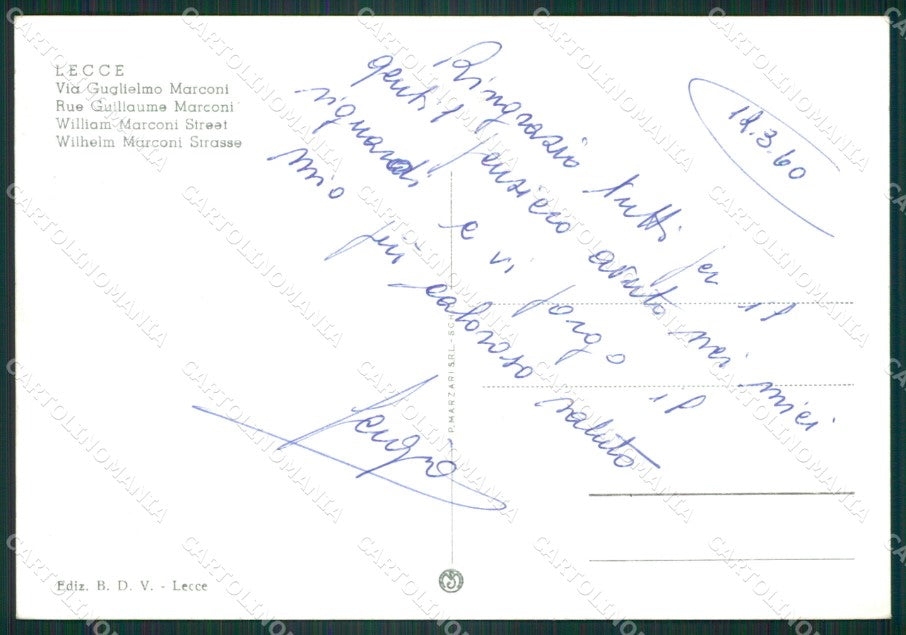 LECCE
Via Guglielmo Marconi
Rue Guillaume Marconi
William Marconi Street
Wilhelm Marconi Strasse
12.3.60
Ringrazio tutti per il
gentil pensiero avuto nei miei
riguardi e vi porgo il
mio più caloroso saluto
P. MARZARI SRL - SCH
Ediz. B. D. V. - Lecce
CARTOLINOMANIA